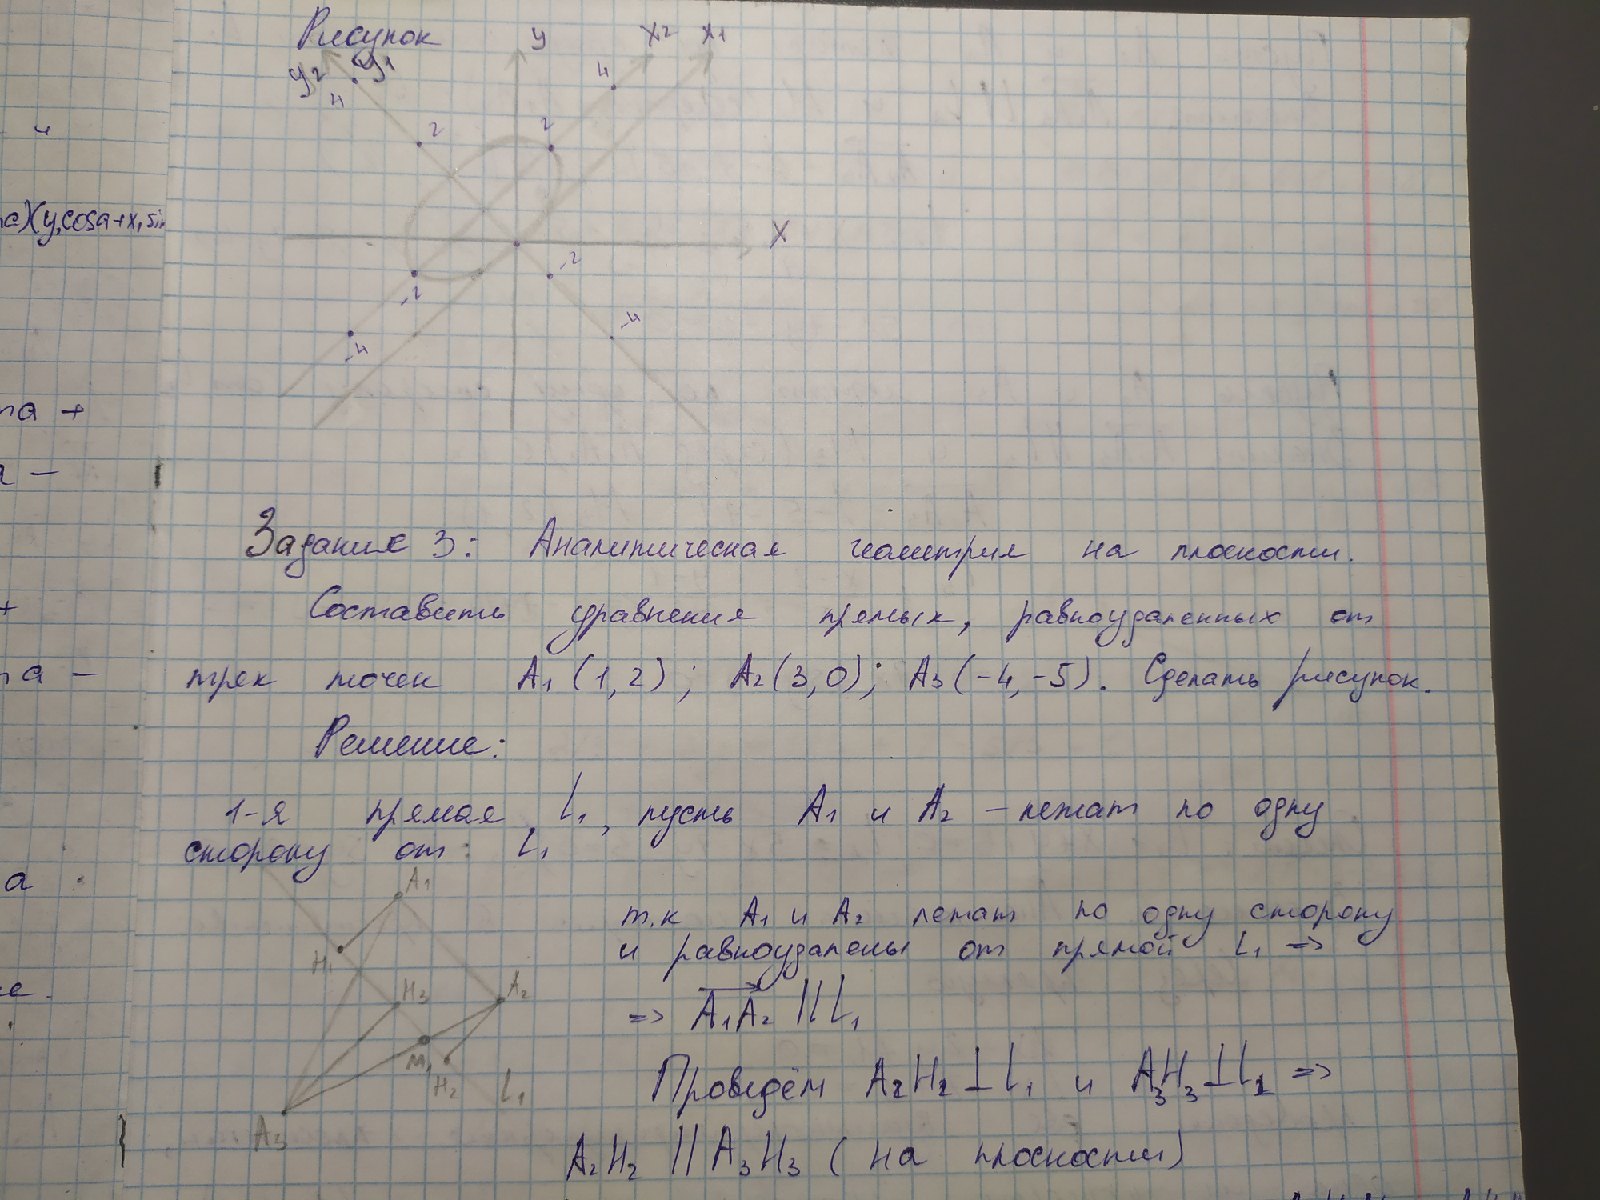 Рисунок
y
x2
x1
y2
y1
4
4
2
2
x
-2
-2
-4
-4
Задание 3: Аналитическая геометрия на плоскости.
Составить уравнения прямых, равноудаленных от
трех точек A1 (1,2); A2 (3,0); A3 (-4,-5). Сделать рисунок.
Решение:
1-я прямая L1, пусть A1 и A2 - лежат по одну
сторону от L1
A1
H1
H3
A2
M1
H2
L1
A3
т.к A1 и A2 лежат по одну сторону
и равноудалены от прямой L1 =>
=> A1A2 || L1
Проведём A2H2 ⊥ L1 и A3H3 ⊥ L1 =>
A2H2 || A3H3 (на плоскости)